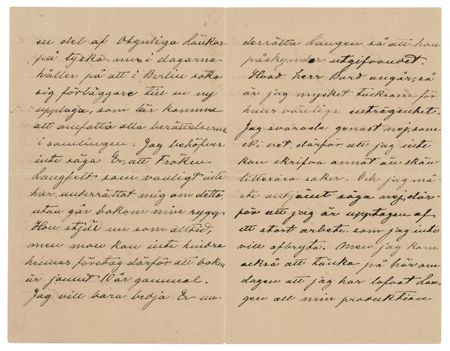 en del af Osynliga Länkar
på tyska nu i dagarna
håller på att i Berlin söka
sig förläggare till en ny
upplaga, som lär komma
att omfatta alla berättelserna
i samlingen. Jag behöfver
inte säga Er, att fröken
Langfeldt som vanligt inte
har underrättat mig om detta,
utan går bakom min rygg.
Hon stjäl nu som alltid,
men man kan inte hindra
hennes företag därför att boken
är jämnt 10 år gammal.
Jag vill bara bedja Er un-
derrätta Langen så att han
påskyndar utgifvandet.
Hvad herr Burd angår, så
är jag mycket tacksam för
hans vänliga enträgenhet.
Jag svarade genast nej, som
Ni vet, därför att jag inte
kan skrifva annat än skön
litterära saker. Och jag må-
ste alltjämt säga nej, där-
för att jag är upptagen af
ett stort arbete som jag inte
vill afbryta. Men jag kom
också att tänka på här om
dagen att jag har lofvat Lan-
gen all min produktion